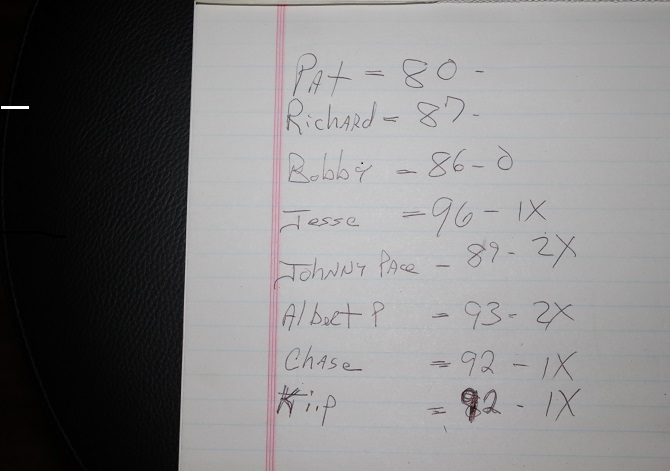 PAt = 80 -
RicHARd = 87 -
Bobby = 86 - 0
Jesse = 96 - 1X
JoHNNY PAce - 89 - 2X
Albert P = 93 - 2X
CHAse = 92 - 1X
Kiip = 92 - 1X